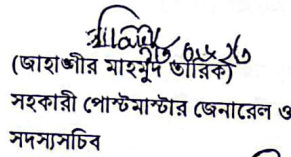 (জাহাঙ্গীর মাহমুদ তারিক)
সহকারী পোস্টমাস্টার জেনারেল ও
সদস্যসচিব